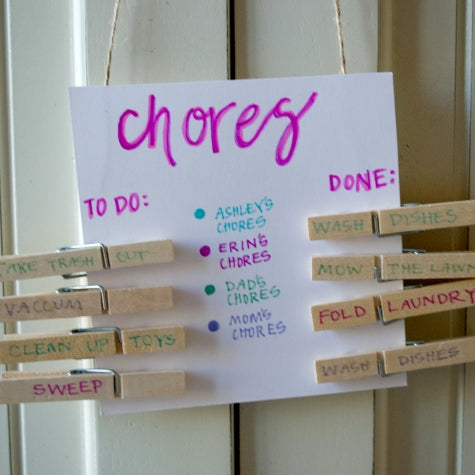 chores
TO DO:
TAKE TRASH OUT
VACCUM
CLEAN UP TOYS
SWEEP
ASHLEY'S
CHORES
ERIN'S
CHORES
DAD'S
CHORES
MOM'S
CHORES
DONE:
WASH DISHES
MOW THE LAWN
FOLD LAUNDRY
WASH DISHES